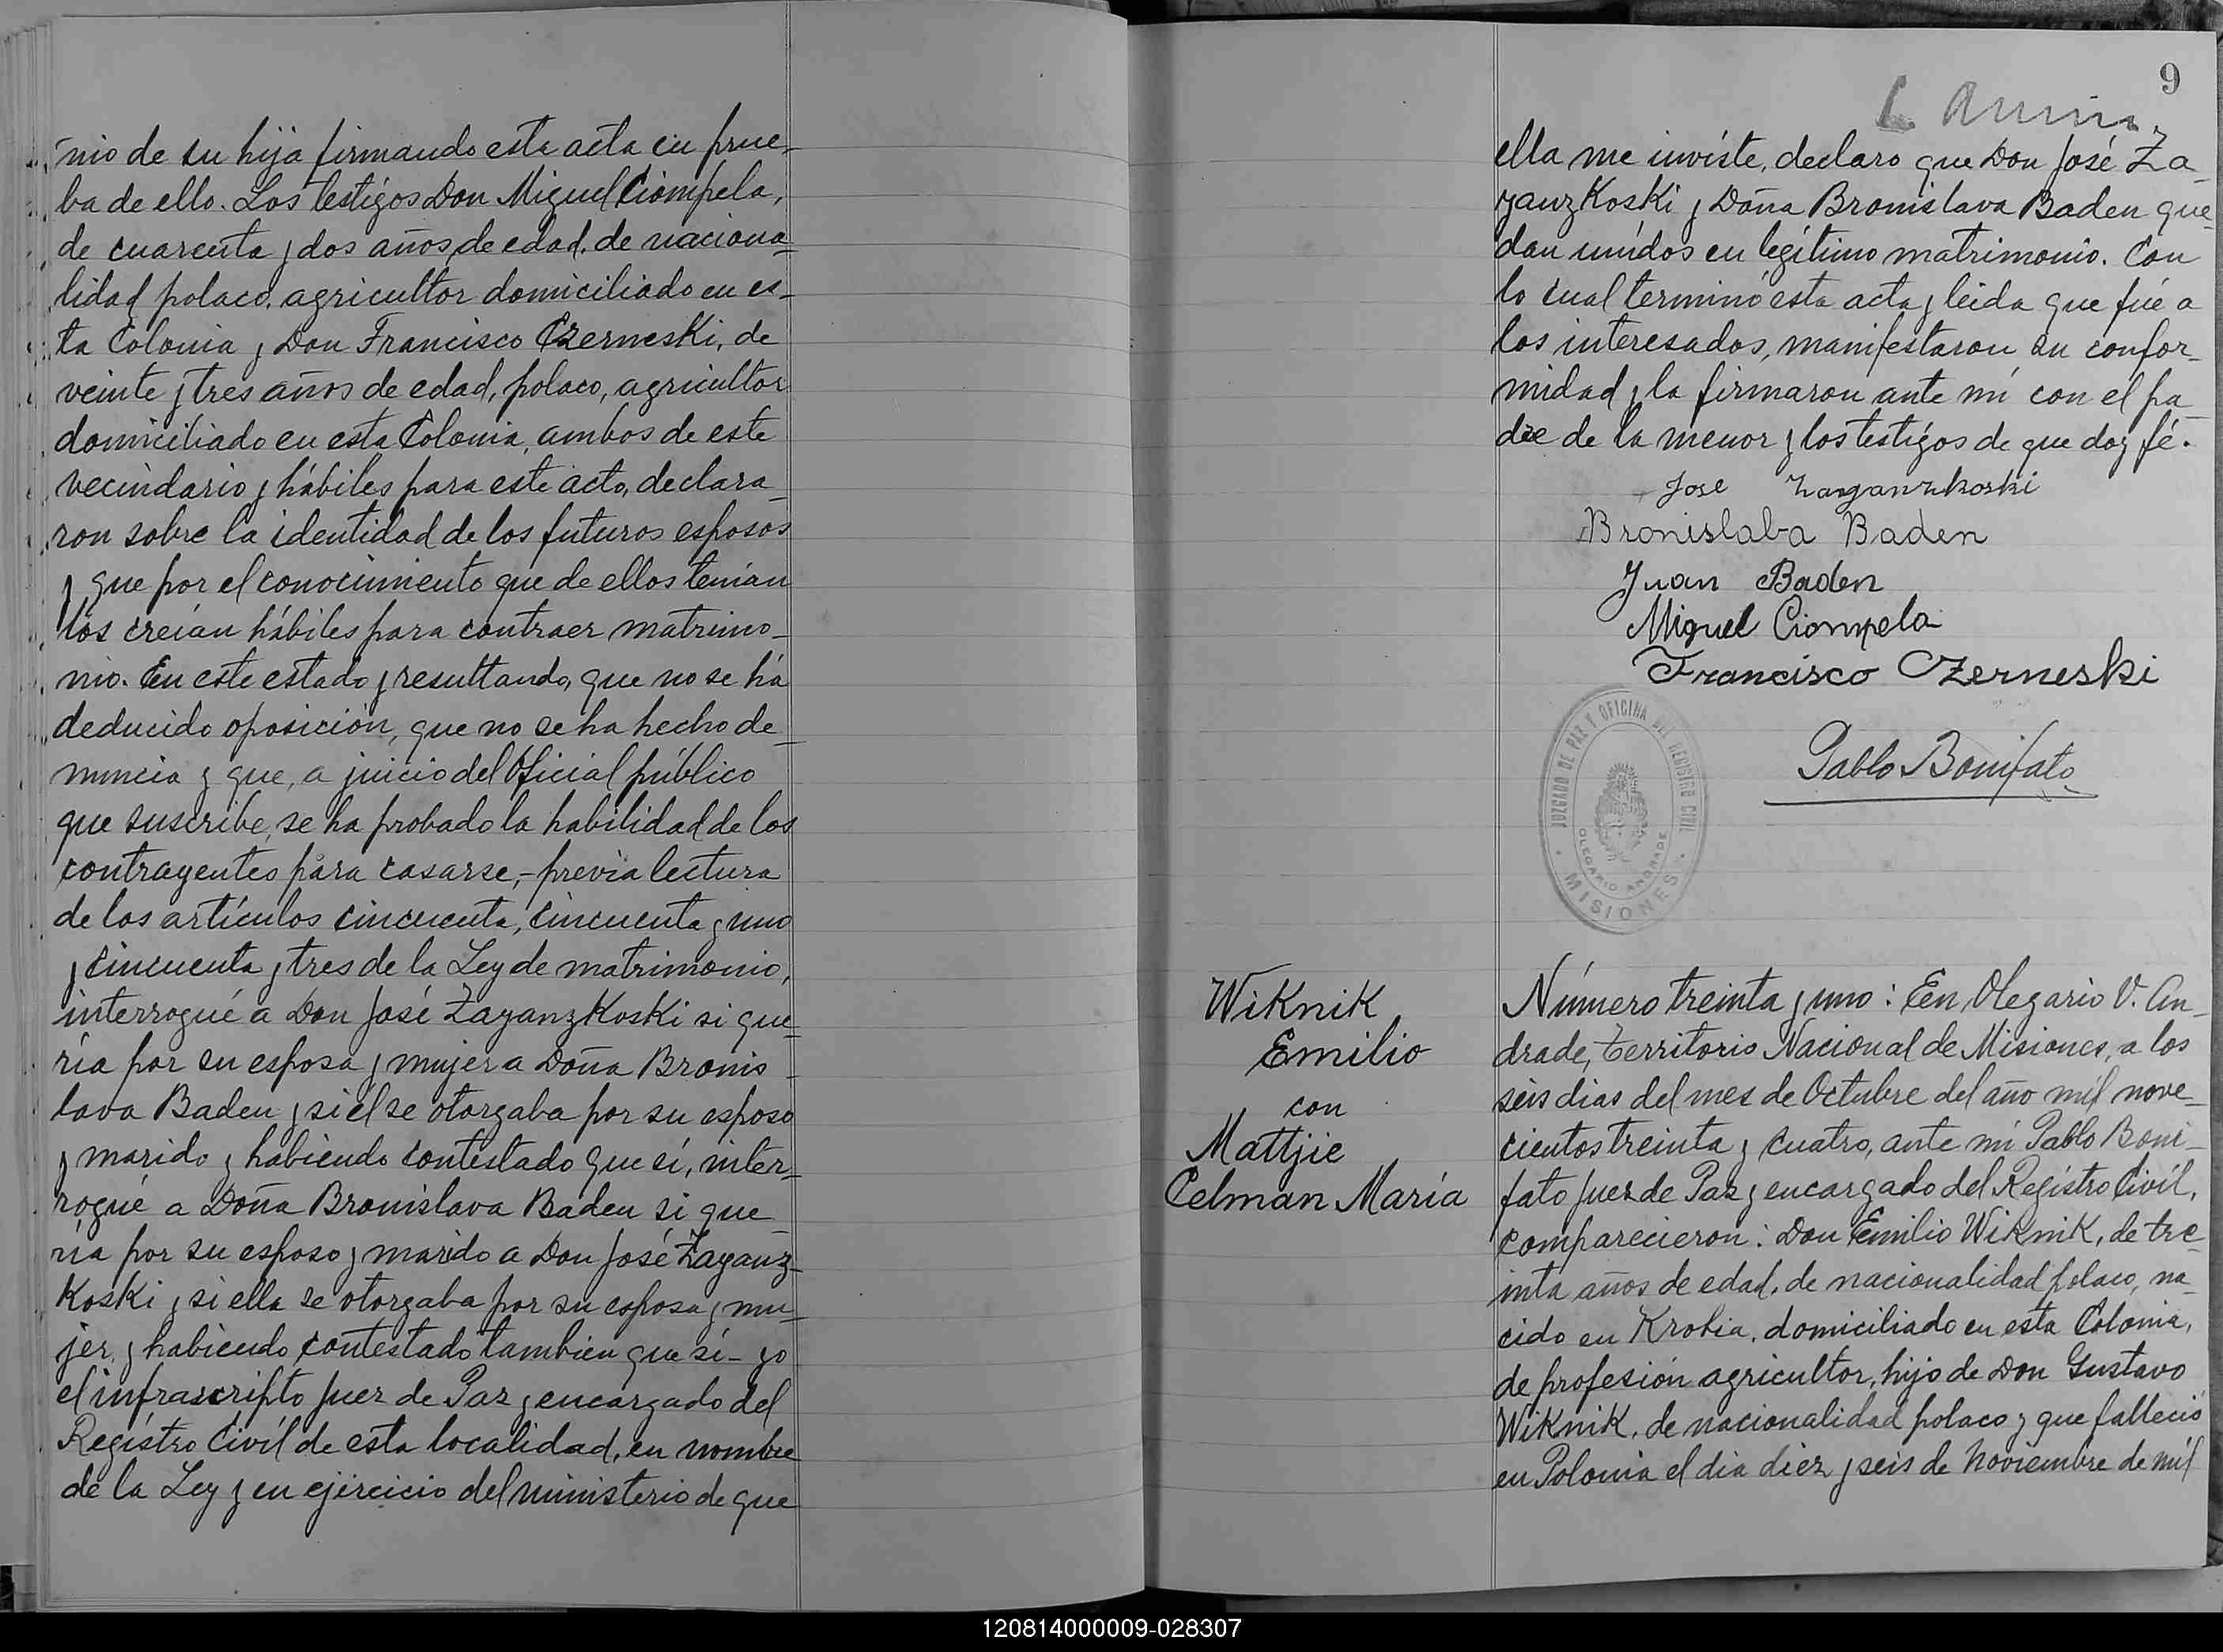 nio de su hija firmando esta acta en prue-
ba de ello. Los testigos Don Miguel Ciompela,
de cuarenta y dos años de edad, de naciona-
lidad polaco, agricultor domiciliado en es-
ta Colonia y Don Francisco Czerneski, de
veinte y tres años de edad, polaco, agricultor
domiciliado en esta Colonia, ambos de este
vecindario y hábiles para este acto, declara-
ron sobre la identidad de los futuros esposos
y que por el conocimiento que de ellos tenían
los creían hábiles para contraer matrimo-
nio. En este estado y resultando, que no se há
deducido oposición, que no se ha hecho de-
nuncia y que, a juicio del Oficial público
que suscribe, se ha probado la habilidad de los
contrayentes para casarse,- previa lectura
de los artículos cincuenta, cincuenta y uno
y cincuenta y tres de la Ley de matrimonio,
interrogué a Don José ZayanzKoski si que-
ría por su esposa y mujer a Doña Bronis-
lava Baden y si él se otorgaba por su esposo
y marido y habiendo contestado que sí, inter-
rogué a Doña Bronislava Baden si que-
ría por su esposo y marido a Don José Zayanz-
Koski y si ella se otorgaba por su esposa y mu-
jer, y habiendo contestado tambien que sí- yo
el infrascripto Juez de Paz y encargado del
Registro Civíl de esta localidad, en nombre
de la Ley y en ejercicio del ministerio de que
9
ella me inviste, declaro que Don José Za-
yanzKoski y Doña Bronislava Baden que-
dan unídos en legítimo matrimonio. Con
lo cual terminó esta acta y leida que fué a
los interesados, manifestaron su confor-
midad y la firmaron ante mí con el pa-
dre de la menor y los testígos de que doy fé.
Jose Zayanzkoski
Bronislaba Baden
Juan Baden
Miguel Ciompela
Francisco Czerneski
Pablo Bonifato
JUZGADO DE PAZ Y OFICINA DEL REGISTRO CIVIL
OLEGARIO ANDRADE
MISIONES
WiKnik
Emilio
con
Mattjie
Celman María
Número treinta y uno: En Olegario V. An-
drade, territorio Nacional de Misiones, a los
seis dias del mes de Octubre del año míl nove-
cientos treinta y cuatro, ante mí Pablo Boni-
fato Juez de Paz y encargado del Regístro Civíl,
comparecieron: Don Emilio WiKnik, de tre-
inta años de edad, de nacionalidad polaco, na-
cido en Krobia, domiciliado en esta Colonia,
de profesión agricultor, hijo de Don Gustavo
WiKnik, de nacionalidad polaco y que falleció
en Polonia el dia diez y seis de Noviembre de míl
120814000009-028307